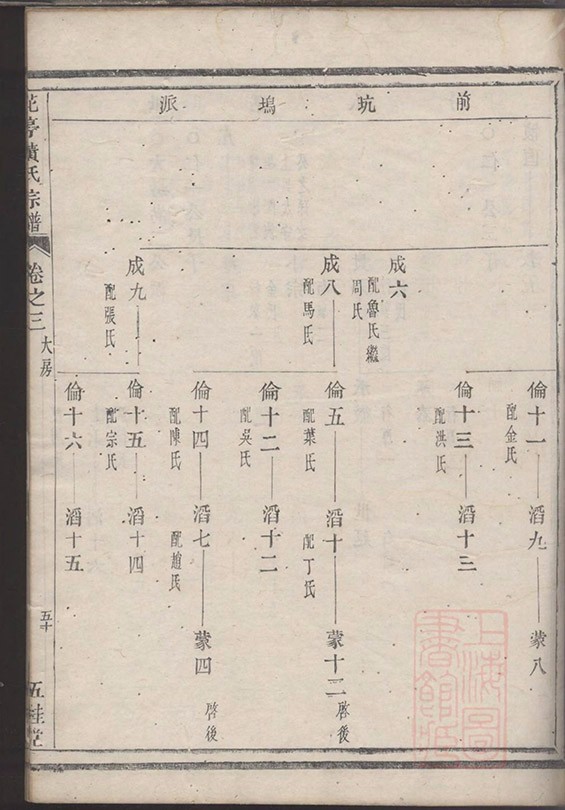 前坑塢派
倫十一
配金氏
滔九
蒙八
倫十三
配洪氏
滔十三
成六
配魯氏繼
周氏
成八
配馬氏
倫五
配葉氏
滔十
配丁氏
蒙十二
啓後
倫十二
配吳氏
滔十二
倫十四
配陳氏
滔七
配趙氏
蒙四
啓後
成九
配張氏
倫十五
配宗氏
滔十四
倫十六
滔十五
花亭黃氏宗譜
卷之三
大房
五十
五桂堂
上海圖
書館藏